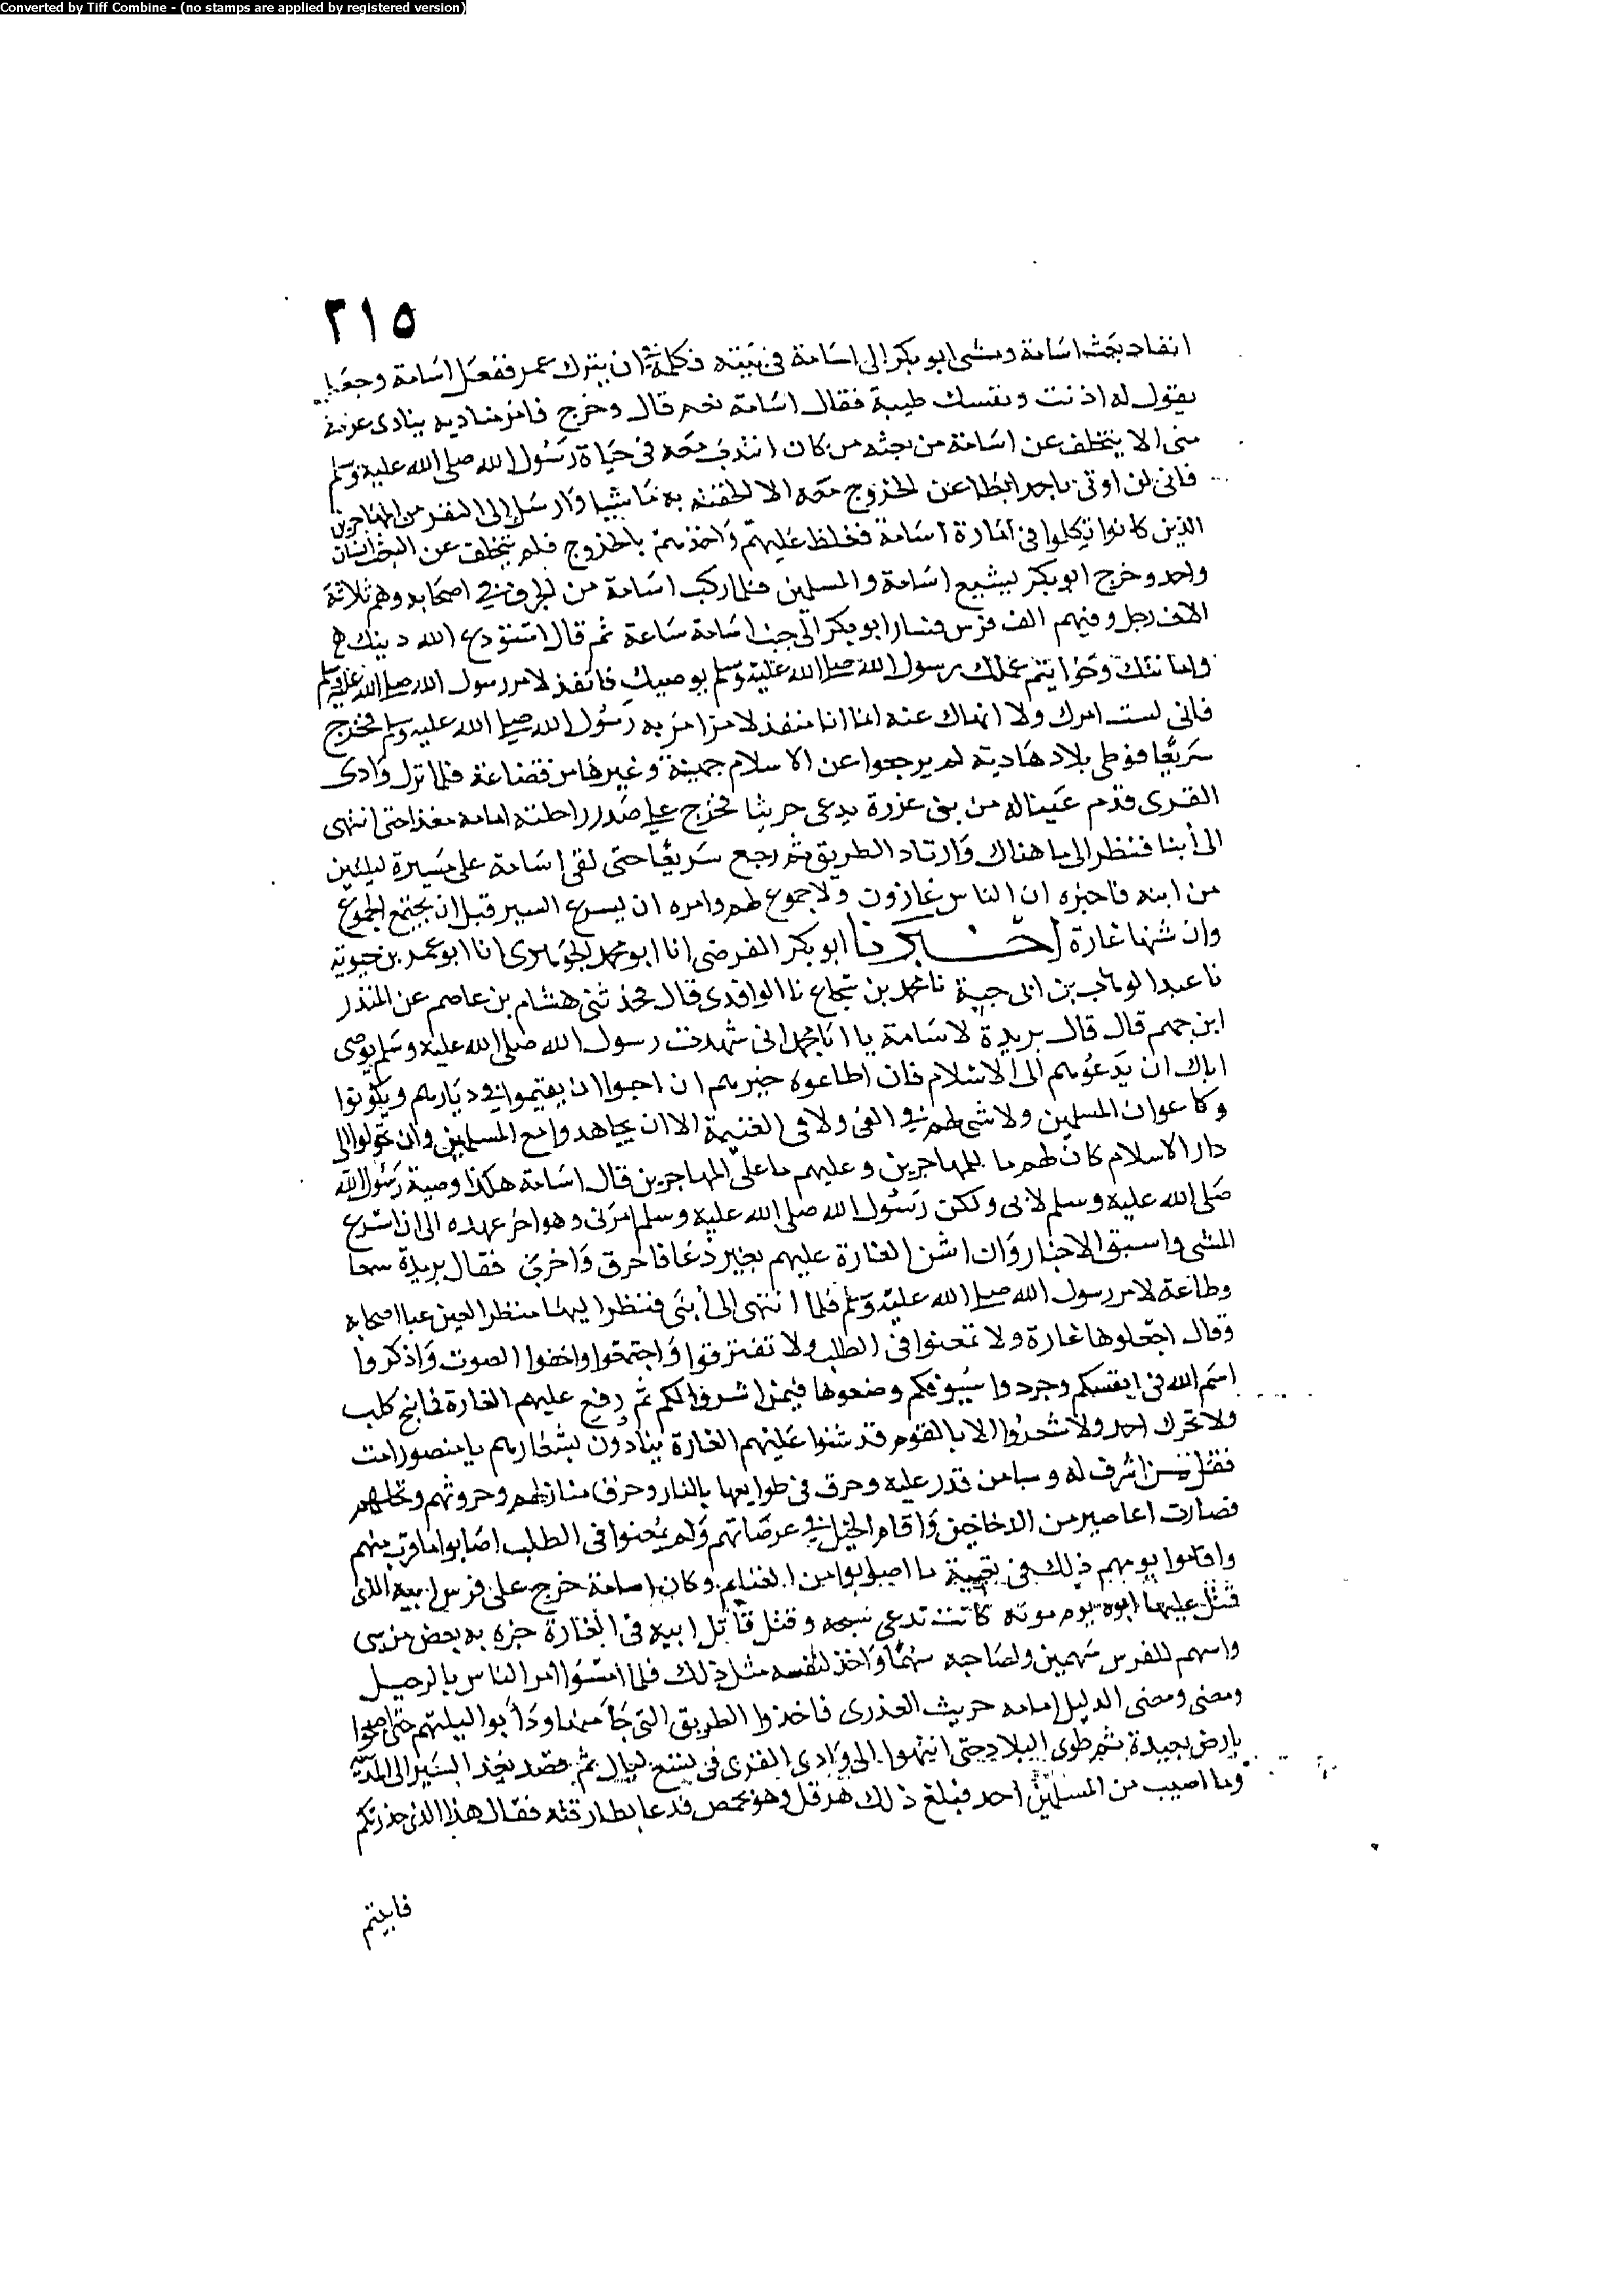 Converted by Tiff Combine - (no stamps are applied by registered version)
٢١٥
انفاد بعث اسامة ومشى ابو بكر الى اسامة في بيته فكلمه في ان يترك عمر ففعل اسامة وجعل
يقول له اذنت ونفسك طيبة فقال اسامة نعم قال وخرج فامر مناديه ينادى عزمة
منى الا يتخلف عن اسامة من بعثه من كان انتدب معه في حياة رسول الله صلى الله عليه وسلم
فانى لن اوتى باحد ابطا عن الخروج معه الا الحقته به ماشيا وارسل الى النفر من المهاجرين
الذين كانوا تكلموا في امارة اسامة فغلظ عليهم واخذهم بالخروج فلم يتخلف عن البعث انسان
واحد وخرج ابو بكر يشيع اسامة والمسلمين فلما ركب اسامة من الجرف في اصحابه وهم ثلاثة
الاف رجل وفيهم الف فرس فسار ابو بكر الى جنب اسامة ساعة ثم قال استودع الله دينك
وامانتك وخواتيم عملك رسول الله صلى الله عليه وسلم يوصيك فانفذ لامر رسول الله صلى الله عليه وسلم
فانى لست امرك ولا انهاك عنه انما انا منفذ لامر امر به رسول الله صلى الله عليه وسلم فخرج
سريعا فوطى بلاد هادية لم يرجعوا عن الاسلام جهينة وغيرها من قضاعة فلما نزل وادى
القرى قدم عينا له من بنى عزرة يدعى حريثا فخرج على صدر راحلته امامه مغذا حتى انتهى
الى أبنا فنظر الى ما هناك وارتاد الطريق ثم رجع سريعا حتى لقى اسامة على مسيرة ليلتين
من ابنه فاخبره ان الناس غازون ولا جموع لهم وامره ان يسرع السير قبل ان يجتمع الجموع
وان شنها غارة اخبرنا ابو بكر الفرضى انا ابو محمد الجوهرى انا ابو عمر بن حيوية
نا عبد الوهاب بن ابى حية نا محمد بن شجاع نا الواقدى قال فحدثنى هشام بن عاصم عن المنذر
ابن جهم قال قال بريدة لاسامة يا ابا محمد انى شهدت رسول الله صلى الله عليه وسلم يوصى
اباك ان يدعوهم الى الاسلام فان اطاعوه خيرهم ان احبوا ان يقيموا في ديارهم ويكونوا
وكا عوان المسلمين ولا شى لهم في الفى ولا في الغنيمة الا ان يجاهدوا مع المسلمين وان تحولوا الى
دار الاسلام كان لهم ما للمهاجرين وعليهم ما على المهاجرين قال اسامة هكذا وصية رسول الله
صلى الله عليه وسلم لابى ولكن رسول الله صلى الله عليه وسلم امرنى وهو اخر عهده الى ان اسرع
المشى واسبق الاخبار وان اشن الغارة عليهم بغير دعا فاحرق واخرب فقال بريدة سمعا
وطاعة لامر رسول الله صلى الله عليه وسلم فلما انتهى الى أبنى فنظر اليها منظر العين عبا اصحابه
وقال اجعلوها غارة ولا تمعنوا في الطلب ولا تفترقوا واجتمعوا واخفوا الصوت واذكروا
اسم الله في انفسكم وجردوا سيوفكم وضعوها فيمن اشرف لكم ثم دفع عليهم الغارة فما نبح كلب
ولا تحرك احد ولا شعروا الا بالقوم قد شنوا عليهم الغارة ينادون بشعارهم يا منصور امت
فقتل من اشرف له وسبا من قدر عليه وحرق في طوايفها بالنار وحرق منازلهم وحروثهم ونخلهم
فصارت اعاصير من الدخاخين واقام الخيل في عرصاتهم ولم يمعنوا في الطلب اصابوا ما قرب منهم
واقاموا يومهم ذلك في تعبية ما اصابوا من الغنايم وكان اسامة خرج على فرس ابيه الذى
قتل عليها ابوه يوم موته كانت تدعى سبحه وقتل قاتل ابيه في الغارة خبره به بعض من سبى
واسهم للفرس سهمين ولصاحبه سهما واخذ لنفسه مثل ذلك فلما امسوا امر الناس بالرحيل
ومضى ومضى الدليل امامه حريث العذرى فاخذوا الطريق التى جا منها ودأبوا ليلتهم حتى اصبحوا
بارض بعيدة ثم طوى البلاد حتى انتهوا الى وادى القرى في تسع ليال ثم قصد يغذ السير الى المدينة
وما اصيب من المسلمين احد فبلغ ذلك هرقل وهو بحمص فدعا بطارقته فقال هذا الذى حذرتكم
فابيتم